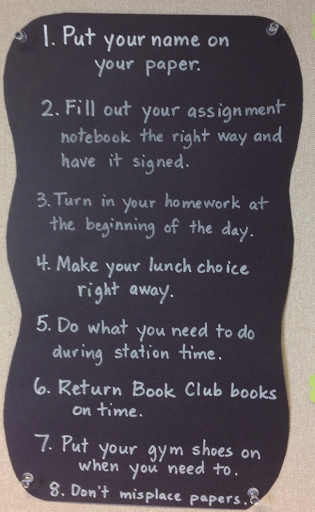 1. Put your name on
your paper.
2. Fill out your assignment
notebook the right way and
have it signed.
3. Turn in your homework at
the beginning of the day.
4. Make your lunch choice
right away.
5. Do what you need to do
during station time.
6. Return Book Club books
on time.
7. Put your gym shoes on
when you need to.
8. Don't misplace papers.